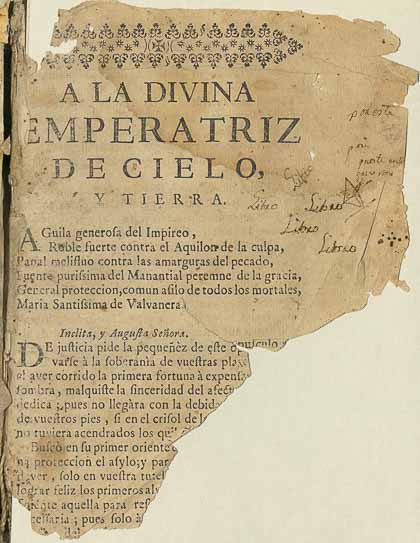 A LA DIVINA
EMPERATRIZ
DE CIELO,
Y TIERRA.
por este
por
Libro
Libro
Libro
Libro
Libro
AGuila generosa del Impireo,
Roble fuerte contra el Aquilon de la culpa,
Panal melifluo contra las amarguras del pecado,
Fuente purissima del Manantial peremne de la gracia,
General proteccion, comun asilo de todos los mortales,
Maria Santissima de Valvanera.
Inclita, y Augusta Señora.
DE justicia pide la pequeñèz de este opusculo
varse à la soberanìa de vuestras
el aver corrido la primera fortuna à expensa
sombra, malquiste la sinceridad del afec
dedica; pues no llegàra con la debida
de vuestros pies, si en el crisol de l
no tuviera acendrados los qui
Buscò en su primer oriente
na proteccion el asylo; y par
dever, solo en vuestra tutel
lograr feliz los primeros al
aquella para ref
cessaria; pues solo à